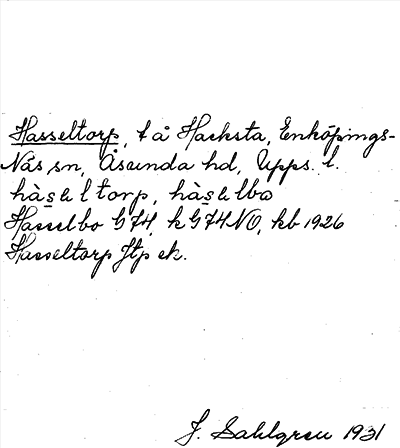 Hasseltorp, t å Hacksta, Enköpings-
Näs sn, Åsunda hd, Upps. l.
hàseltorp, hàselbo
Hasselbo G74, k G74NO, kb 1926
Hasseltorp Jtp ek.
J. Sahlgren 1931